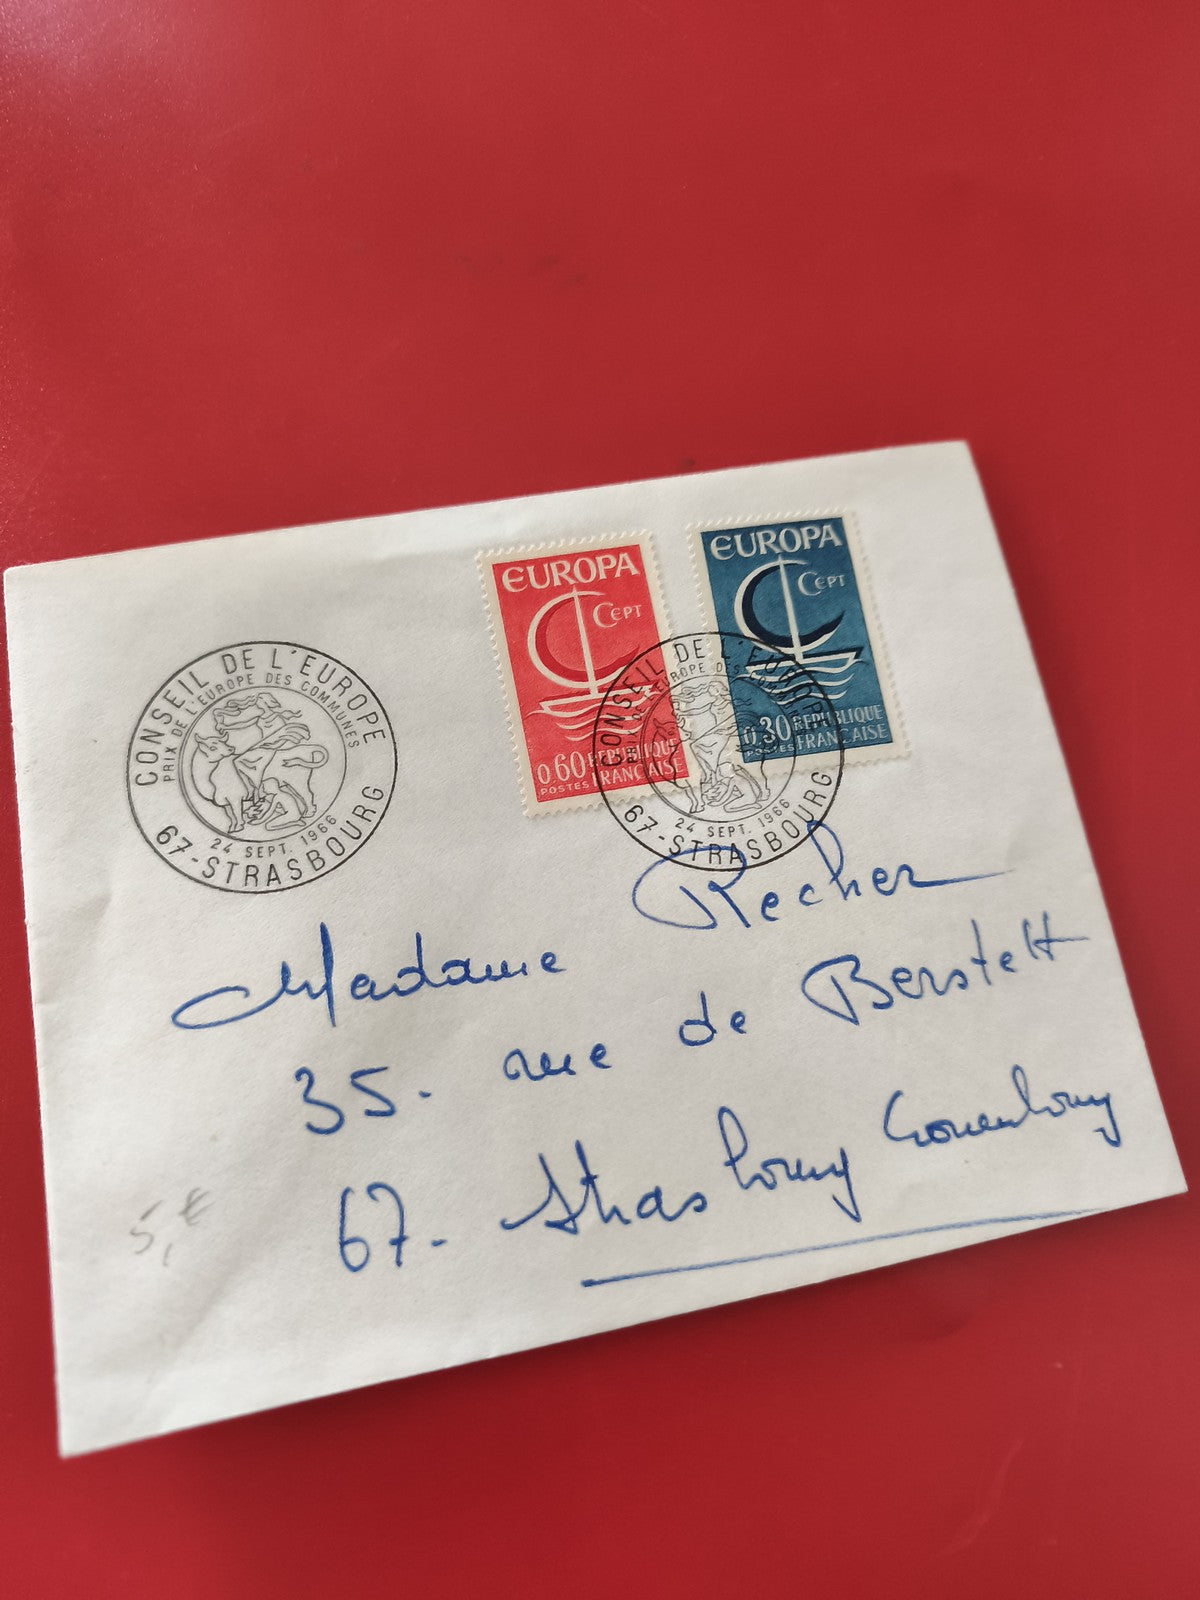 CONSEIL DE L'EUROPE
PRIX DE L'EUROPE DES COMMUNES
24 SEPT. 1966
67-STRASBOURG
EUROPA
CEPT
0.60 REPUBLIQUE
POSTES FRANÇAISE
EUROPA
CEPT
0.30 REPUBLIQUE
POSTES FRANÇAISE
CONSEIL DE L'EUROPE
PRIX DE L'EUROPE DES COMMUNES
24 SEPT. 1966
67-STRASBOURG
Madame Recher
35. rue de Berstett
67. Strasbourg Cronenbourg
5,€